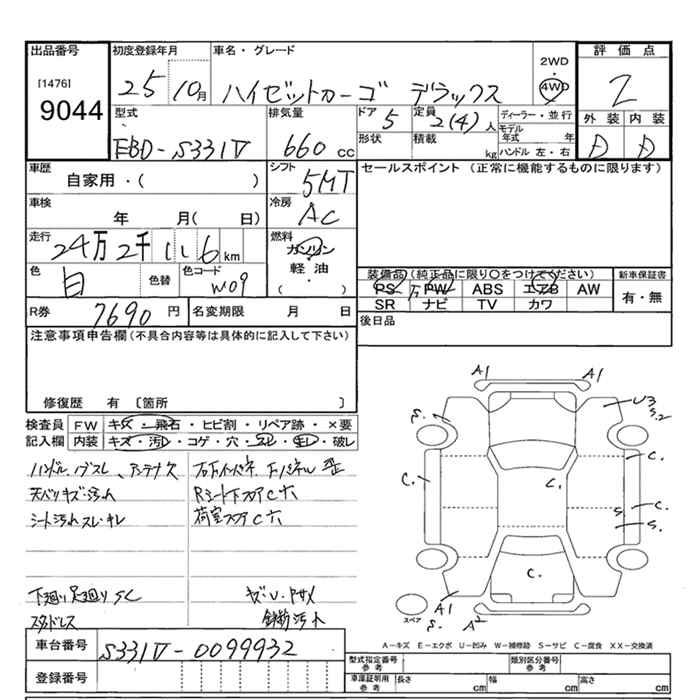 出品番号 初度登録年月 車名・グレード 2WD 評価点
[1476] 25 10月 ハイゼットカーゴ デラックス 4WD 2
9044 型式 排気量 ドア 5 定員 2(4)人 ディーラー・並行 外装 内装
EBD-S331V 660 cc 形状 積載 kg モデル年式 年 ハンドル 左・右 D D
車歴 シフト セールスポイント (正常に機能するものに限ります)
自家用・( ) 5MT
車検 冷房
年 月( 日) AC
走行 24万2千 km 燃料 ガソリン
色 白 色替 色コード W09 軽油 ( ・ ) 装備品(純正品に限り○をつけてください) 新車保証書
PS PW ABS エアB AW 有・無
SR ナビ TV カワ
R券 7690 円 名変期限 月 日 後日品
注意事項申告欄(不具合内容等は具体的に記入して下さい)
修復歴 有 〔箇所 〕
検査員 FW キズ・飛石・ヒビ割・リペア跡・×要
記入欄 内装 キズ・汚れ・コゲ・穴・ ・ ・破レ
ハンドル、 スレ、アンテナ欠
天バリキズ・汚れ Rシート下フロアC穴
シート汚れスレ・キレ 荷室フロアC穴
下廻り足廻りSC
スタッドレス
車台番号 S331V-0099932
登録番号
A1 A1
S. U3
S.2
C. C. C.
C.
S. S.
C.
A1 S. A2
スペア
A－キズ E－エクボ U－凹み W－補修跡 S－サビ C－腐食 XX－交換済
型式指定番号 参考 類別区分番号 参考
車庫証明用 参考 長さ cm 幅 cm 高さ cm